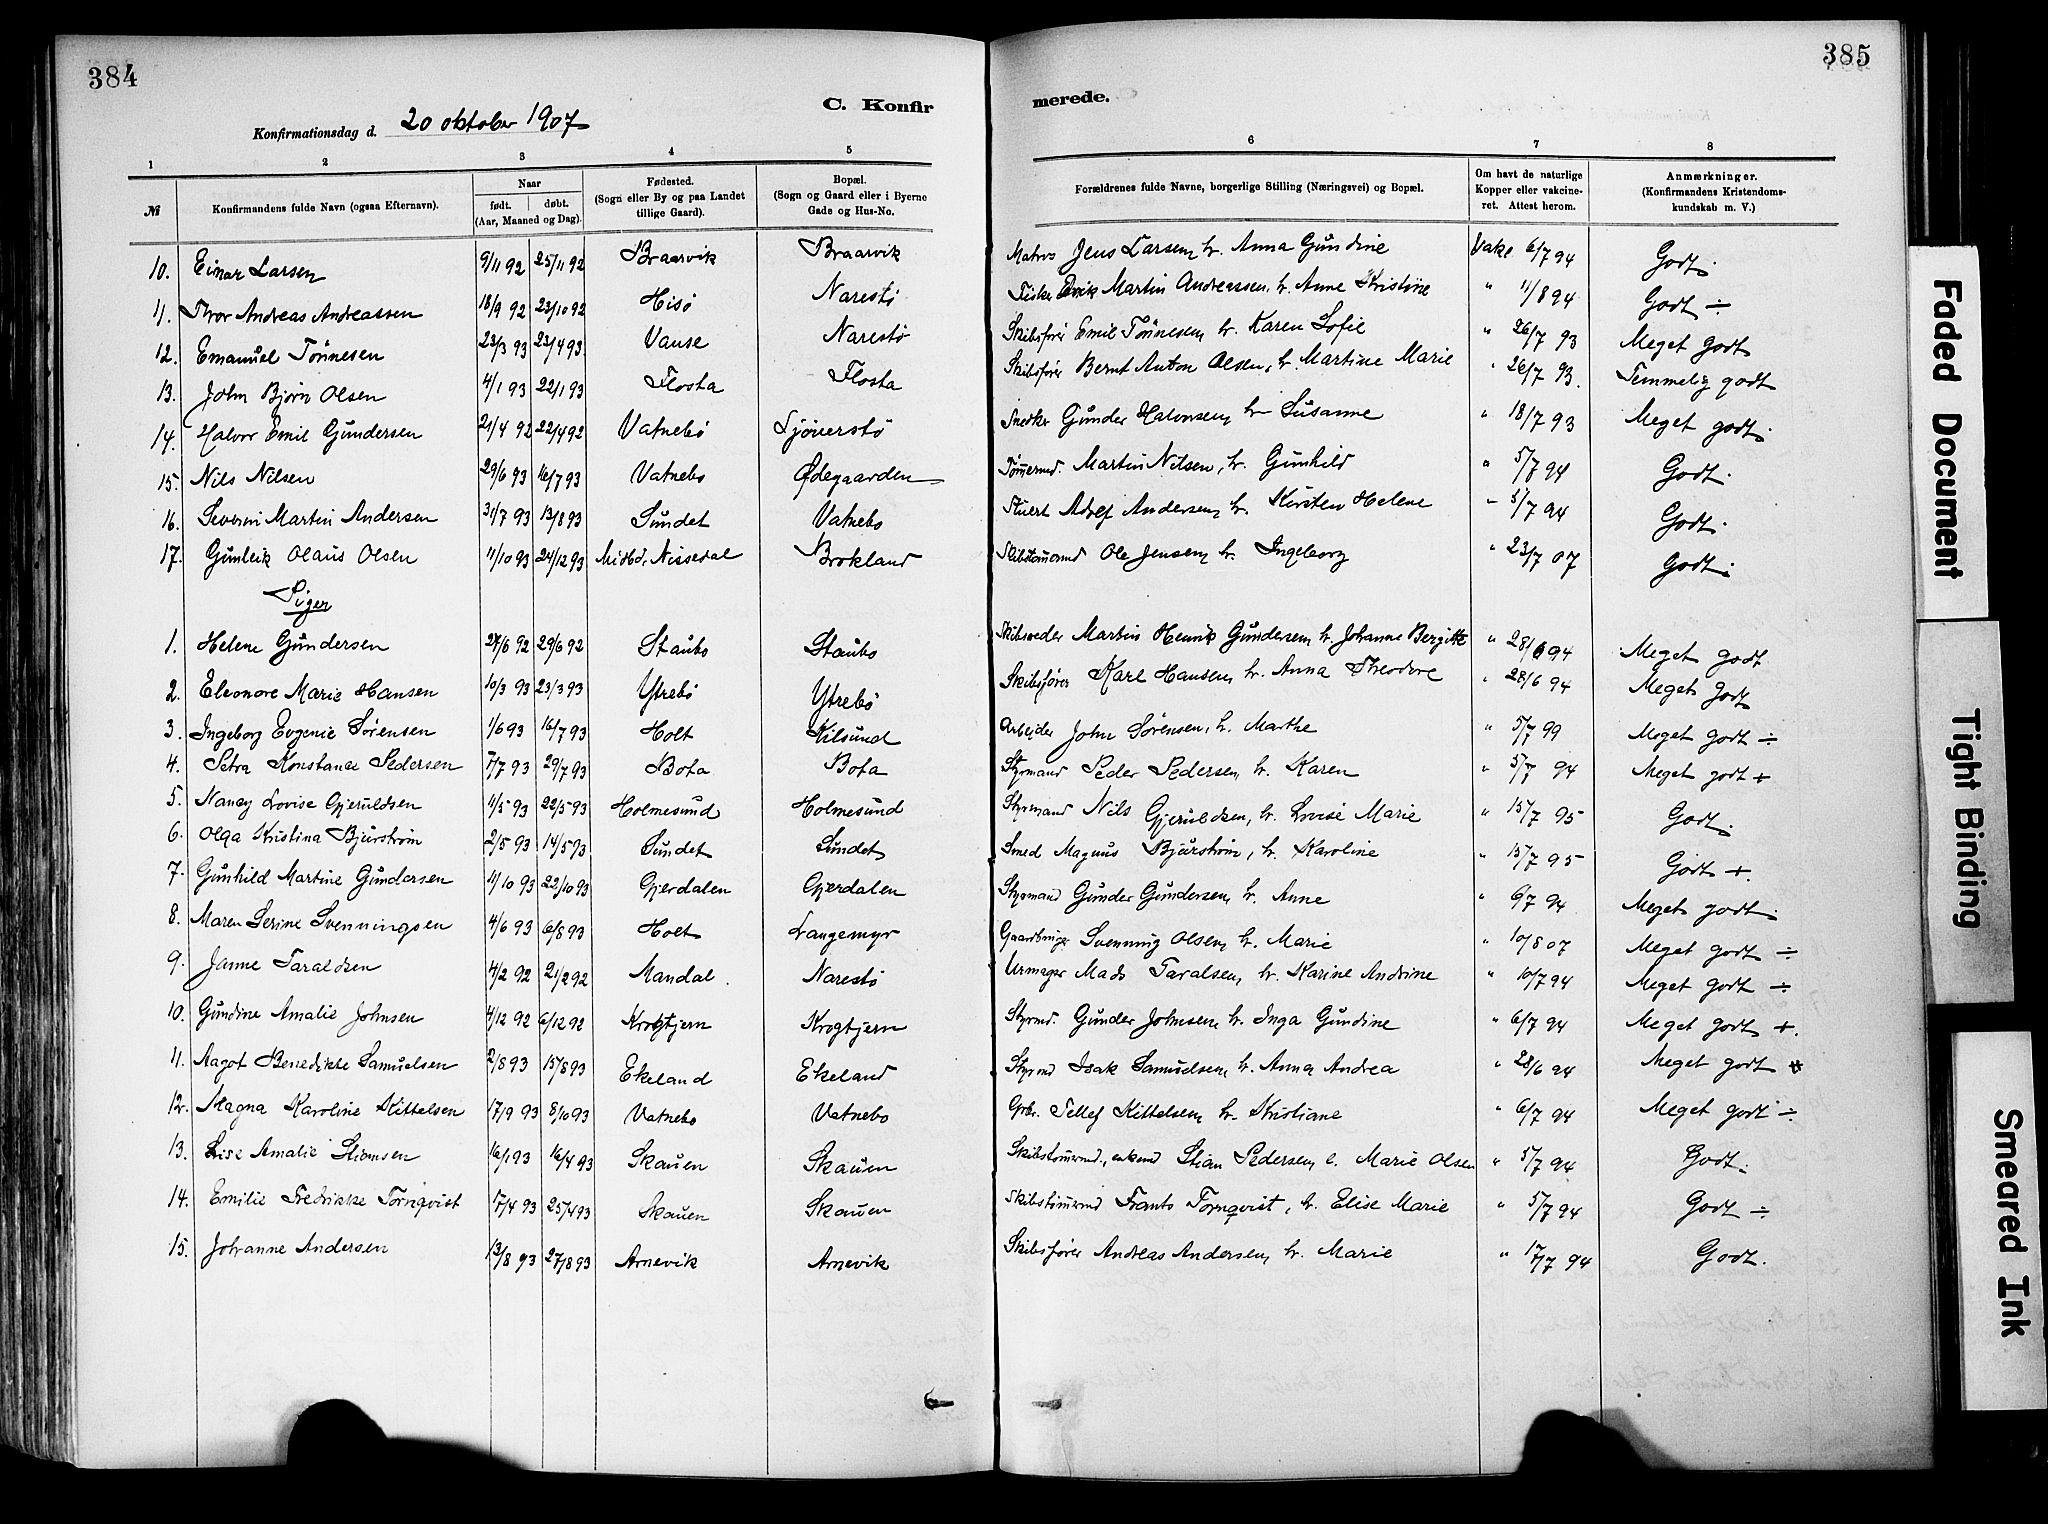 384
C. Konfir
Konfirmationsdag d. 20 oktober 1907
1 2 3 4 5
№ Konfirmandens fulde Navn (ogsaa Efternavn). Naar født. døbt. (Aar, Maaned og Dag). Fødested. (Sogn eller By og paa Landet tillige Gaard). Bopæl. (Sogn og Gaard eller i Byerne Gade og Hus-No.
10. Einar Larsen 9/11 92 25/11 92 Braarvik Braarvik
11. Thor Andreas Andreassen 18/9 92 23/10 92 Hisø Narestø
12. Emanuel Tønnesen 23/3 93 23/4 93 Vanse Narestø
13. John Bjørn Olsen 4/1 93 22/1 93 Flosta Flosta
14. Halvor Emil Gundersen 21/4 92 22/4 92 Vatnebø Sjøverstø
15. Nils Nilsen 29/6 93 16/7 93 Vatnebo Ødegaarden
16. Severin Martin Andersen 31/7 93 13/8 93 Sundet Vatnebo
17. Gunleik Olaus Olsen 11/10 93 24/12 93 Midbø, Nissedal Brokland
Piger
1. Helene Gundersen 27/6 92 29/6 92 Staubo Staubo
2. Eleonore Marie Hansen 10/3 93 23/3 93 Ytrebø Ytrebø
3. Ingeborg Evgenie Sørensen 1/6 93 16/7 93 Holt Kilsund
4. Petra Konstance Pedersen 7/7 93 29/7 93 Bota Bota
5. Nancy Lovise Gjeruldsen 11/5 93 22/5 93 Holmesund Holmesund
6. Olga Kristina Bjurstrøm 2/5 93 14/5 93 Sundet Sundet
7. Gunhild Martine Gundersen 11/10 93 22/10 93 Gjerdalen Gjerdalen
8. Maren Serine Svenningsen 4/6 93 6/8 93 Holt Langemyr
9. Janne Taraldsen 4/2 92 21/2 92 Mandal. Narestø
10. Gundine Amalie Johnsen 4/12 92 6/12 92 Krogtjern Krogtjern
11. Aagot Benedikte Samuelsen 2/8 93 15/8 93 Ekeland Ekeland
12. Magna Karoline Kittelsen 17/9 93 8/10 93 Vatnebo Vatnebo
13. Lise Amalie Stiansen 16/1 93 16/4 93 Skauen Skauen
14. Emilie Fredrikke Tornqvist 17/4 93 25/4 93 Skauen Skauen
15. Johanne Andersen 13/8 93 27/8 93 Arnevik Arnevik
385
merede.
6 7 8
Forældrenes fulde Navne, borgerlige Stilling (Næringsvei) og Bopæl. Om havt de naturlige Kopper eller vakcineret. Attest herom. Anmærkninger. (Konfirmandens Kristendomskundskab m. V.)
Matros Jens Larsen, h. Anna Gundine Vakc 6/7 94 Godt.
Fisker Martin Andreassen, h. Anne Kristine " 11/8 94 Godt ÷
Skibsfører Emil Tønnesen, h. Karen Sofie " 26/7 93 Meget godt
Skibsfører Bernt Anton Olsen, h. Martine Marie " 26/7 93. Temmelig godt
Snedker Gunder Halvorsen, h. Susanne " 18/7 93 Meget godt.
Tømermd. Martin Nilsen, h. Gunhild " 5/7 94 Godt.
Stuert Andersen, h. Kirsten Helene " 5/7 94 Godt.
Skibstømermd Ole Jensen, h. Ingeborg " 23/7 07 Godt.
Skibsreder Martin Henrik Gundersen, h. Johanne Bergitte " 28/6 94 Meget godt
Skibsfører Karl Hansen, h. Anna Theodore " 28/6 94 Meget godt
Arbejder John Sørensen, h. Marthe " 5/7 99 Meget godt ÷
Styrmand Peder Pedersen, h. Karen " 5/7 94 Meget godt +
Styrmand Nils Gjeruldsen, h. Lovise Marie " 15/7 95 Godt.
Smed Magnus Bjurstrøm, h. Karoline " 15/7 95 Godt +.
Styrmand Gunder Gundersen, h. Anne " 6/7 94 Meget godt.
Gaardbruger Svenning Olsen, h. Marie " 10/8 07 Meget godt ÷
Urmager Mads Taralsen, h. Karine Andrine " 10/7 94 Meget godt ÷
Styrmd. Gunder Johnsen, h. Inga Gundine " 6/7 94 Meget godt +.
Styrmd Isak Samuelsen, h. Anna Andrea " 28/6 94 Meget godt +
Grbr. Tellef Kittelsen, h. Kristiane " 6/7 94 Meget godt ÷
Skibstømrmd., enkemd Stian Pedersen, e. Marie Olsen " 5/7 94 Godt.
Skibstømrmd Frants Tornqvist, h. Elise Marie " 5/7 94 Godt ÷
Skibsfører Andreas Andersen, h. Marie " 17/7 94 Godt.
Faded Document
Tight Binding
Smeared Ink